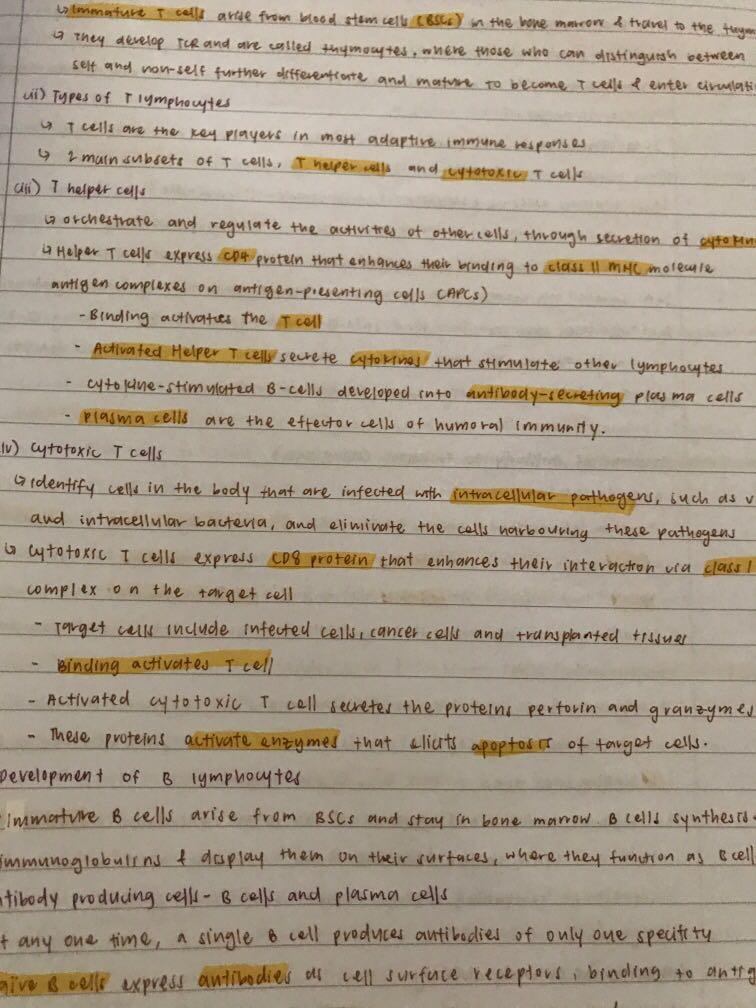 ↳ Immature T cells arise from blood stem cells (BSCs) in the bone marrow & travel to the thym
↳ They develop TCR and are called thymocytes, where those who can distinguish between
self and non-self further differentiate and mature to become T cells & enter circulati
ii) Types of T lymphocytes
↳ T cells are the key players in most adaptive immune responses
↳ 2 main subsets of T cells, T helper cells and cytotoxic T cells
iii) T helper cells
↳ orchestrate and regulate the activities of other cells, through secretion of cytokin
↳ Helper T cells express CD4 protein that enhances their binding to class II MHC molecule
antigen complexes on antigen-presenting cells (APCs)
- Binding activates the T cell
- Activated Helper T cells secrete cytokines that stimulate other lymphocytes
- cytokine-stimulated B-cells developed into antibody-secreting plasma cells
- plasma cells are the effector cells of humoral immunity.
iv) Cytotoxic T cells
↳ identify cells in the body that are infected with intracellular pathogens, such as v
and intracellular bacteria, and eliminate the cells harbouring these pathogens
↳ Cytotoxic T cells express CD8 protein that enhances their interaction via class I
complex on the target cell
- Target cells include infected cells, cancer cells and transplanted tissues
- Binding activates T cell
- Activated cytotoxic T cell secretes the proteins perforin and granzymes
- These proteins activate enzymes that elicits apoptosis of target cells.
Development of B lymphocytes
Immature B cells arise from BSCs and stay in bone marrow. B cells synthesis
immunoglobulins & display them on their surfaces, where they function as B cell
ntibody producing cells - B cells and plasma cells
t any one time, a single B cell produces antibodies of only one specifity
aive B cells express antibodies as cell surface receptors, binding to antig